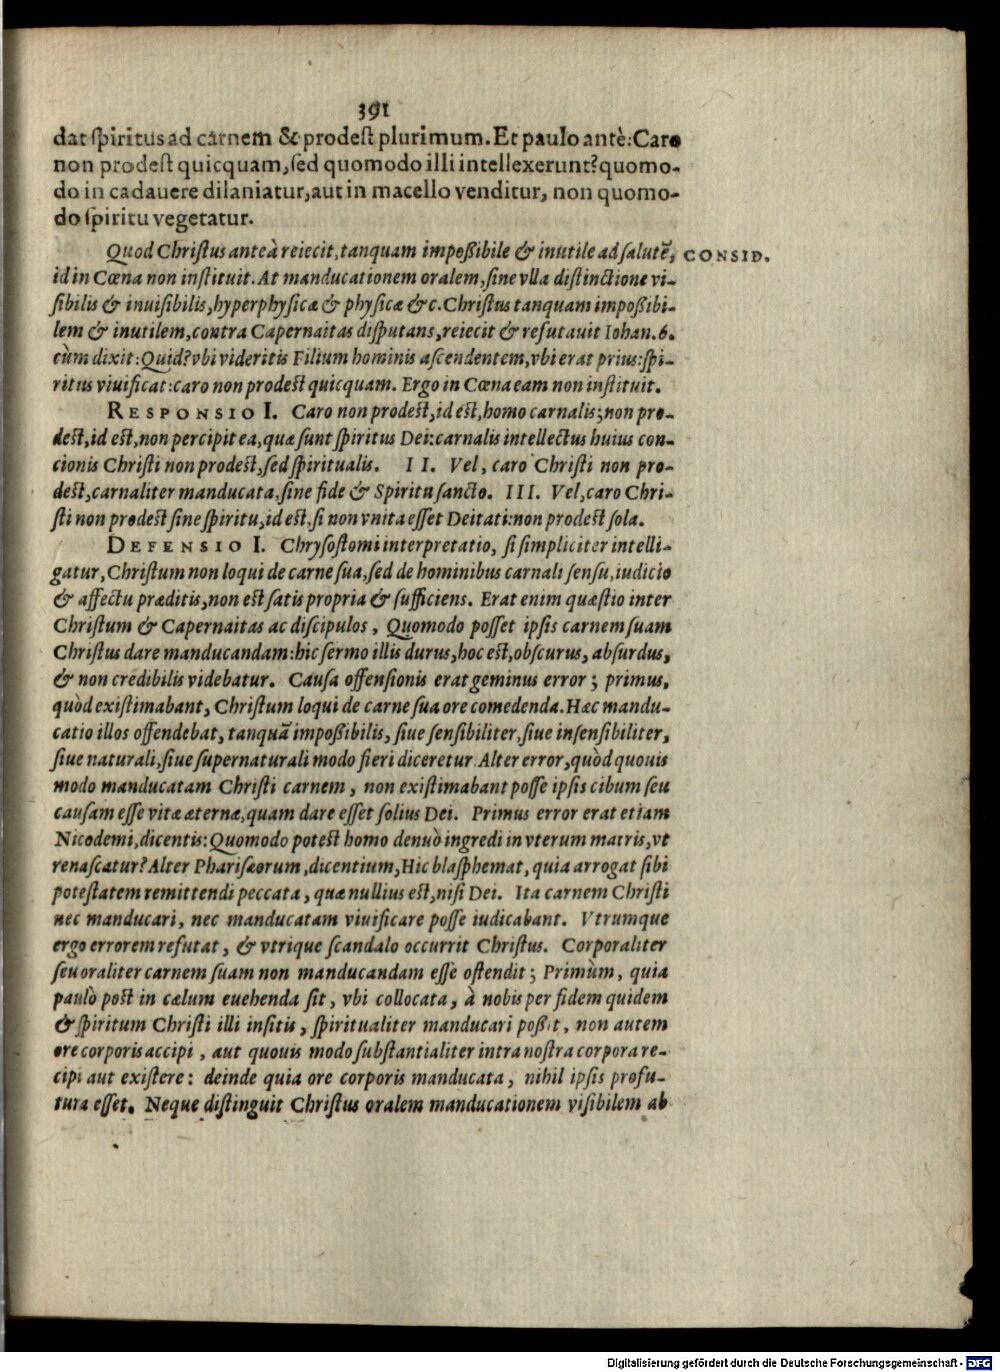 391
dat ſpiritus ad carnem & prodeſt plurimum. Et paulo antè: Caro
non prodeſt quicquam, ſed quomodo illi intellexerunt? quomo-
do in cadauere dilaniatur, aut in macello venditur, non quomo-
do ſpiritu vegetatur.
Quod Chriſtus anteà reiecit, tanquam impoßibile & inutile ad ſalutē, CONSID.
id in Cœna non inſtituit. At manducationem oralem, ſine vlla diſtinctione vi-
ſibilis & inuiſibilis, hyperphyſicæ & phyſicæ &c. Chriſtus tanquam impoßibi-
lem & inutilem, contra Capernaitas diſputans, reiecit & refutauit Iohan. 6.
cùm dixit: Quid? vbi videritis Filium hominis aſcendentem, vbi erat prius: ſpi-
ritus viuificat: caro non prodeſt quicquam. Ergo in Cœna eam non inſtituit.
RESPONSIO I. Caro non prodeſt, id eſt, homo carnalis; non pro-
deſt, id eſt, non percipit ea, quæ ſunt ſpiritus Dei: carnalis intellectus huius con-
cionis Chriſti non prodeſt, ſed ſpiritualis. II. Vel, caro Chriſti non pro-
deſt, carnaliter manducata, ſine fide & Spiritu ſancto. III. Vel, caro Chri-
ſti non prodeſt ſine ſpiritu, id eſt, ſi non vnita eſſet Deitati: non prodeſt ſola.
DEFENSIO I. Chryſoſtomi interpretatio, ſi ſimpliciter intelli-
gatur, Chriſtum non loqui de carne ſua, ſed de hominibus carnali ſenſu, iudicio
& affectu præditis, non eſt ſatis propria & ſufficiens. Erat enim quæſtio inter
Chriſtum & Capernaitas ac diſcipulos, Quomodo poſſet ipſis carnem ſuam
Chriſtus dare manducandam: hic ſermo illis durus, hoc eſt, obſcurus, abſurdus,
& non credibilis videbatur. Cauſa offenſionis erat geminus error; primus,
quòd exiſtimabant, Chriſtum loqui de carne ſua ore comedenda. Hæc mandu-
catio illos offendebat, tanquā impoßibilis, ſiue ſenſibiliter, ſiue inſenſibiliter,
ſiue naturali, ſiue ſupernaturali modo fieri diceretur. Alter error, quòd quouis
modo manducatam Chriſti carnem, non exiſtimabant poſſe ipſis cibum ſeu
cauſam eſſe vitæ æternæ, quam dare eſſet ſolius Dei. Primus error erat etiam
Nicodemi, dicentis: Quomodo poteſt homo denuò ingredi in vterum matris, vt
renaſcatur? Alter Phariſæorum, dicentium, Hic blaſphemat, quia arrogat ſibi
poteſtatem remittendi peccata, quæ nullius eſt, niſi Dei. Ita carnem Chriſti
nec manducari, nec manducatam viuificare poſſe iudicabant. Vtrumque
ergo errorem refutat, & vtrique ſcandalo occurrit Chriſtus. Corporaliter
ſeu oraliter carnem ſuam non manducandam eſſe oſtendit; Primùm, quia
paulò poſt in cælum euehenda ſit, vbi collocata, à nobis per fidem quidem
& ſpiritum Chriſti illi inſitis, ſpiritualiter manducari poßit, non autem
ore corporis accipi, aut quouis modo ſubſtantialiter intra noſtra corpora re-
cipi aut exiſtere: deinde quia ore corporis manducata, nihil ipſis profu-
tura eſſet. Neque diſtinguit Chriſtus oralem manducationem viſibilem ab
Digitalisierung gefördert durch die Deutsche Forschungsgemeinschaft - DFG